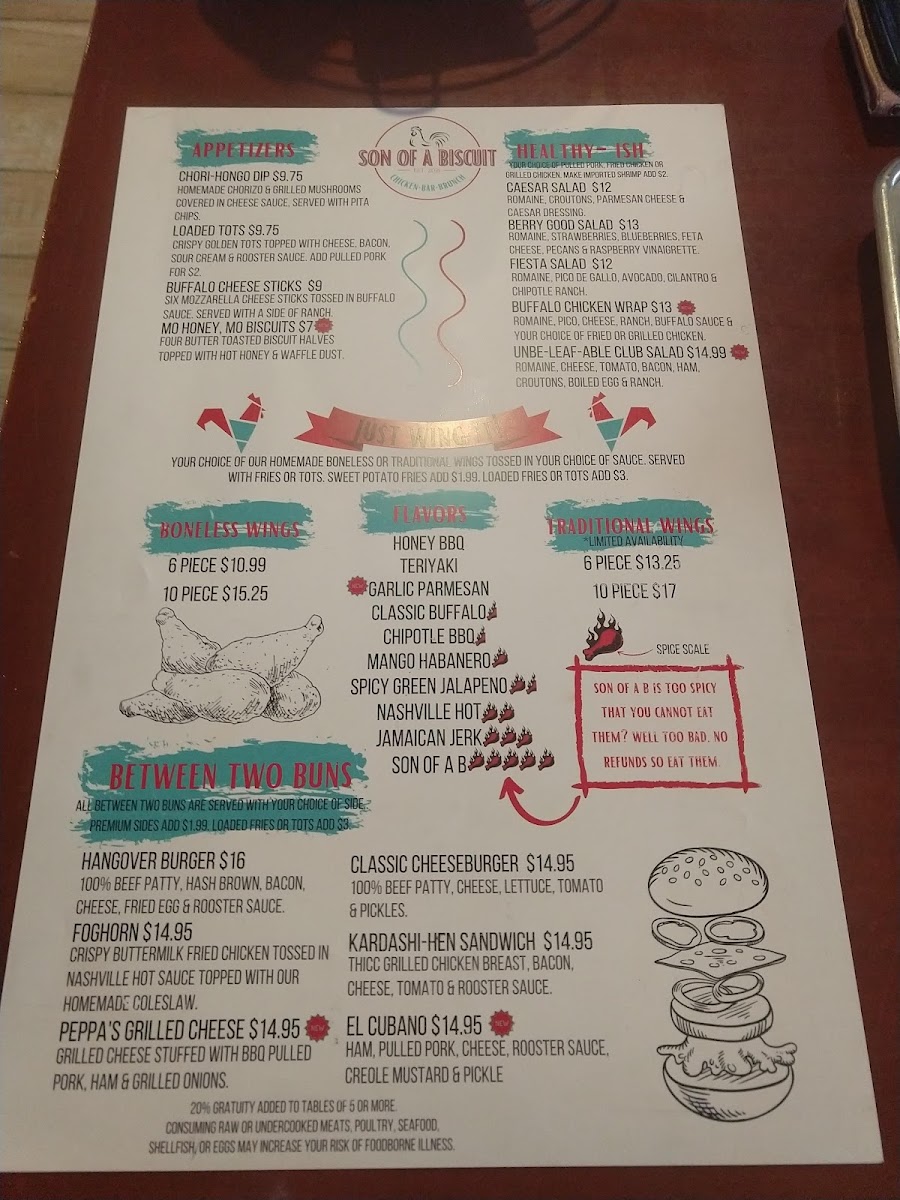 APPETIZERS
CHORI-HONGO DIP $9.75
HOMEMADE CHORIZO & GRILLED MUSHROOMS
COVERED IN CHEESE SAUCE. SERVED WITH PITA
CHIPS.
LOADED TOTS $9.75
CRISPY GOLDEN TOTS TOPPED WITH CHEESE, BACON,
SOUR CREAM & ROOSTER SAUCE. ADD PULLED PORK
FOR $2.
BUFFALO CHEESE STICKS $9
SIX MOZZARELLA CHEESE STICKS TOSSED IN BUFFALO
SAUCE. SERVED WITH A SIDE OF RANCH.
MO HONEY, MO BISCUITS $7
FOUR BUTTER TOASTED BISCUIT HALVES
TOPPED WITH HOT HONEY & WAFFLE DUST.
SON OF A BISCUIT
CHICKEN-BAR-BRUNCH
HEALTHY-ISH
YOUR CHOICE OF PULLED PORK, FRIED CHICKEN OR
GRILLED CHICKEN. MAKE IMPORTED SHRIMP ADD $2.
CAESAR SALAD $12
ROMAINE, CROUTONS, PARMESAN CHEESE &
CAESAR DRESSING.
BERRY GOOD SALAD $13
ROMAINE, STRAWBERRIES, BLUEBERRIES, FETA
CHEESE, PECANS & RASPBERRY VINAIGRETTE.
FIESTA SALAD $12
ROMAINE, PICO DE GALLO, AVOCADO, CILANTRO &
CHIPOTLE RANCH.
BUFFALO CHICKEN WRAP $13
ROMAINE, PICO, CHEESE, RANCH, BUFFALO SAUCE &
YOUR CHOICE OF FRIED OR GRILLED CHICKEN.
UNBE-LEAF-ABLE CLUB SALAD $14.99
ROMAINE, CHEESE, TOMATO, BACON, HAM,
CROUTONS, BOILED EGG & RANCH.
JUST WING IT
YOUR CHOICE OF OUR HOMEMADE BONELESS OR TRADITIONAL WINGS TOSSED IN YOUR CHOICE OF SAUCE. SERVED
WITH FRIES OR TOTS. SWEET POTATO FRIES ADD $1.99. LOADED FRIES OR TOTS ADD $3.
BONELESS WINGS
6 PIECE $10.99
10 PIECE $15.25
FLAVORS
HONEY BBQ
TERIYAKI
NEW GARLIC PARMESAN
CLASSIC BUFFALO
CHIPOTLE BBQ
MANGO HABANERO
SPICY GREEN JALAPENO
NASHVILLE HOT
JAMAICAN JERK
SON OF A B
TRADITIONAL WINGS
*LIMITED AVAILABILITY
6 PIECE $13.25
10 PIECE $17
SPICE SCALE
SON OF A B IS TOO SPICY
THAT YOU CANNOT EAT
THEM? WELL TOO BAD. NO
REFUNDS SO EAT THEM.
BETWEEN TWO BUNS
ALL BETWEEN TWO BUNS ARE SERVED WITH YOUR CHOICE OF SIDE.
PREMIUM SIDES ADD $1.99. LOADED FRIES OR TOTS ADD $3.
HANGOVER BURGER $16
100% BEEF PATTY, HASH BROWN, BACON,
CHEESE, FRIED EGG & ROOSTER SAUCE.
FOGHORN $14.95
CRISPY BUTTERMILK FRIED CHICKEN TOSSED IN
NASHVILLE HOT SAUCE TOPPED WITH OUR
HOMEMADE COLESLAW.
PEPPA'S GRILLED CHEESE $14.95 NEW
GRILLED CHEESE STUFFED WITH BBQ PULLED
PORK, HAM & GRILLED ONIONS.
CLASSIC CHEESEBURGER $14.95
100% BEEF PATTY, CHEESE, LETTUCE, TOMATO
& PICKLES.
KARDASHI-HEN SANDWICH $14.95
THICC GRILLED CHICKEN BREAST, BACON,
CHEESE, TOMATO & ROOSTER SAUCE.
EL CUBANO $14.95 NEW
HAM, PULLED PORK, CHEESE, ROOSTER SAUCE,
CREOLE MUSTARD & PICKLE
20% GRATUITY ADDED TO TABLES OF 5 OR MORE.
CONSUMING RAW OR UNDERCOOKED MEATS, POULTRY, SEAFOOD,
SHELLFISH, OR EGGS MAY INCREASE YOUR RISK OF FOODBORNE ILLNESS.